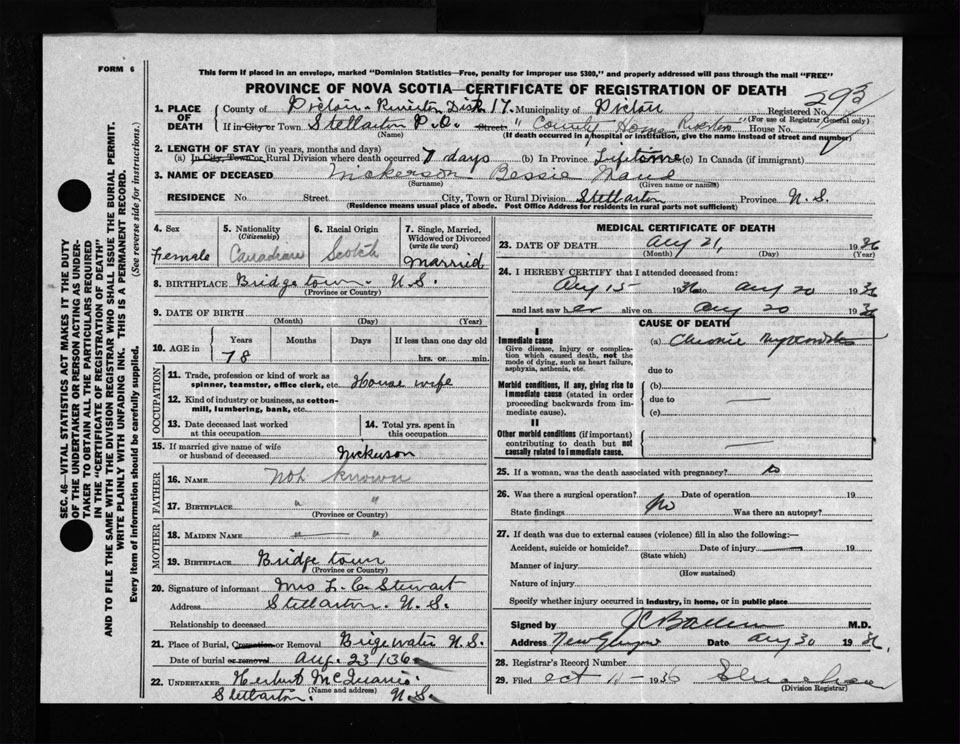 FORM 6
This form if placed in an envelope, marked "Dominion Statistics—Free, penalty for improper use $300," and properly addressed will pass through the mail "FREE"
PROVINCE OF NOVA SCOTIA—CERTIFICATE OF REGISTRATION OF DEATH
1. PLACE OF DEATH
County of Pictou - Riverton Dist 17. Municipality of Pictou Registered No. 293
(For use of Registrar General only)
If in City or Town Stellarton P.O. Street "County Home Riverton" House No.
(Name) (If death occurred in a hospital or institution, give the name instead of street and number)
2. LENGTH OF STAY (in years, months and days)
(a) In City, Town or Rural Division where death occurred 7 days (b) In Province Lifetime (c) In Canada (if immigrant)
3. NAME OF DECEASED Nickerson Bessie Maud
(Surname) (Given name or names)
RESIDENCE No. Street City, Town or Rural Division Stellarton Province N.S.
(Residence means usual place of abode. Post Office Address for residents in rural parts not sufficient)
4. Sex
Female
5. Nationality
(Citizenship)
Canadian
6. Racial Origin
Scotch
7. Single, Married, Widowed or Divorced
(write the word)
Married
8. BIRTHPLACE Bridgetown. N.S.
(Province or Country)
9. DATE OF BIRTH
(Month) (Day) (Year)
10. AGE in
Years Months Days If less than one day old
78 hrs. or min.
OCCUPATION
11. Trade, profession or kind of work as spinner, teamster, office clerk, etc. House wife
12. Kind of industry or business, as cotton-mill, lumbering, bank, etc.
13. Date deceased last worked at this occupation
14. Total yrs. spent in this occupation
15. If married give name of wife or husband of deceased Nickerson
FATHER
16. NAME Not known
17. BIRTHPLACE " "
(Province or Country)
MOTHER
18. MAIDEN NAME " — "
19. BIRTHPLACE Bridgetown
(Province or Country)
20. Signature of informant Mrs L. C. Stewart
Address Stellarton. N.S.
Relationship to deceased
21. Place of Burial, Cremation or Removal Brigewater N.S.
Date of burial or removal Aug. 23/36
22. UNDERTAKER Herbert McQuarrie
(Name and address)
Stellarton. N.S.
MEDICAL CERTIFICATE OF DEATH
23. DATE OF DEATH Aug 21, 1936
(Month) (Day) (Year)
24. I HEREBY CERTIFY that I attended deceased from:
Aug 15 1936 to Aug 20 1936
and last saw her alive on Aug 20 1936
CAUSE OF DEATH
I
Immediate cause
Give disease, injury or complication which caused death, not the mode of dying, such as heart failure, asphyxia, asthenia, etc.
(a) Chronic
due to
Morbid conditions, if any, giving rise to immediate cause (stated in order proceeding backwards from immediate cause).
(b)
due to —
(c)
II
Other morbid conditions (if important) contributing to death but not causally related to immediate cause.
—
25. If a woman, was the death associated with pregnancy?
26. Was there a surgical operation? No Date of operation 19
State findings Was there an autopsy?
27. If death was due to external causes (violence) fill in also the following:—
Accident, suicide or homicide? Date of injury — 19
(State which)
Manner of injury
(How sustained)
Nature of injury
Specify whether injury occurred in industry, in home, or in public place
Signed by M.D.
Address New Glasgow Date Aug 30 1936
28. Registrar's Record Number
29. Filed Oct 11 - 1936
(Division Registrar)
SEC. 46—VITAL STATISTICS ACT MAKES IT THE DUTY
OF THE UNDERTAKER OR PERSON ACTING AS UNDER-
TAKER TO OBTAIN ALL THE PARTICULARS REQUIRED
IN THE "CERTIFICATE OF REGISTRATION OF DEATH"
AND TO FILE THE SAME WITH THE DIVISION REGISTRAR WHO SHALL ISSUE THE BURIAL PERMIT.
WRITE PLAINLY WITH UNFADING INK. THIS IS A PERMANENT RECORD.
Every item of information should be carefully supplied. (See reverse side for instructions.)